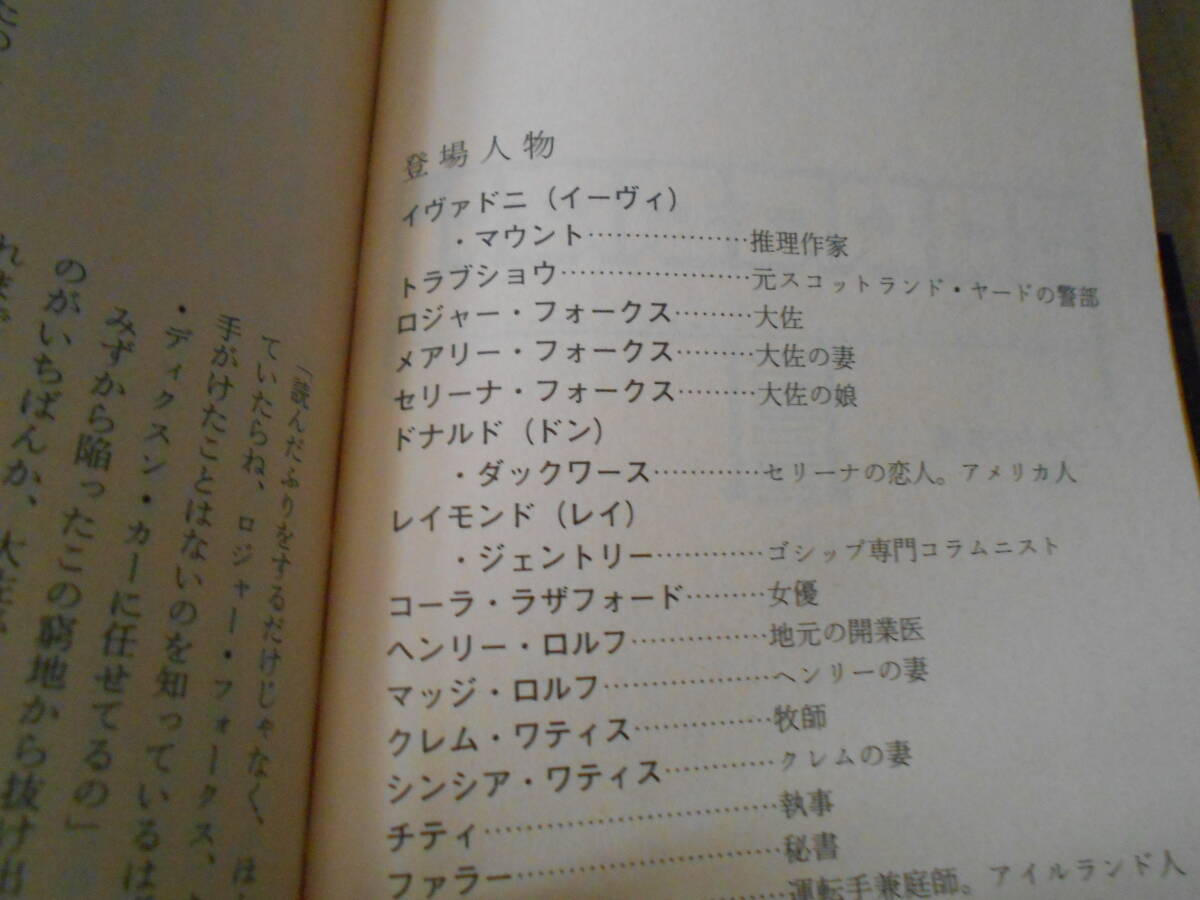 登場人物
イヴァドニ（イーヴィ）
・マウント………………推理作家
トラブショウ…………………元スコットランド・ヤードの警部
ロジャー・フォークス………大佐
メアリー・フォークス………大佐の妻
セリーナ・フォークス………大佐の娘
ドナルド（ドン）
・ダックワース…………セリーナの恋人。アメリカ人
レイモンド（レイ）
・ジェントリー…………ゴシップ専門コラムニスト
コーラ・ラザフォード………女優
ヘンリー・ロルフ……………地元の開業医
マッジ・ロルフ………………ヘンリーの妻
クレム・ワティス……………牧師
シンシア・ワティス…………クレムの妻
チティ…………………………執事
ファラー………………………秘書
…………運転手兼庭師。アイルランド人
「読んだふりをするだけじゃなく、ほ
ていたらね、ロジャー・フォークス、
手がけたことはないのを知っているは
・ディクスン・カーに任せてるの」
みずから陥ったこの窮地から抜け出
のがいちばんか、大佐